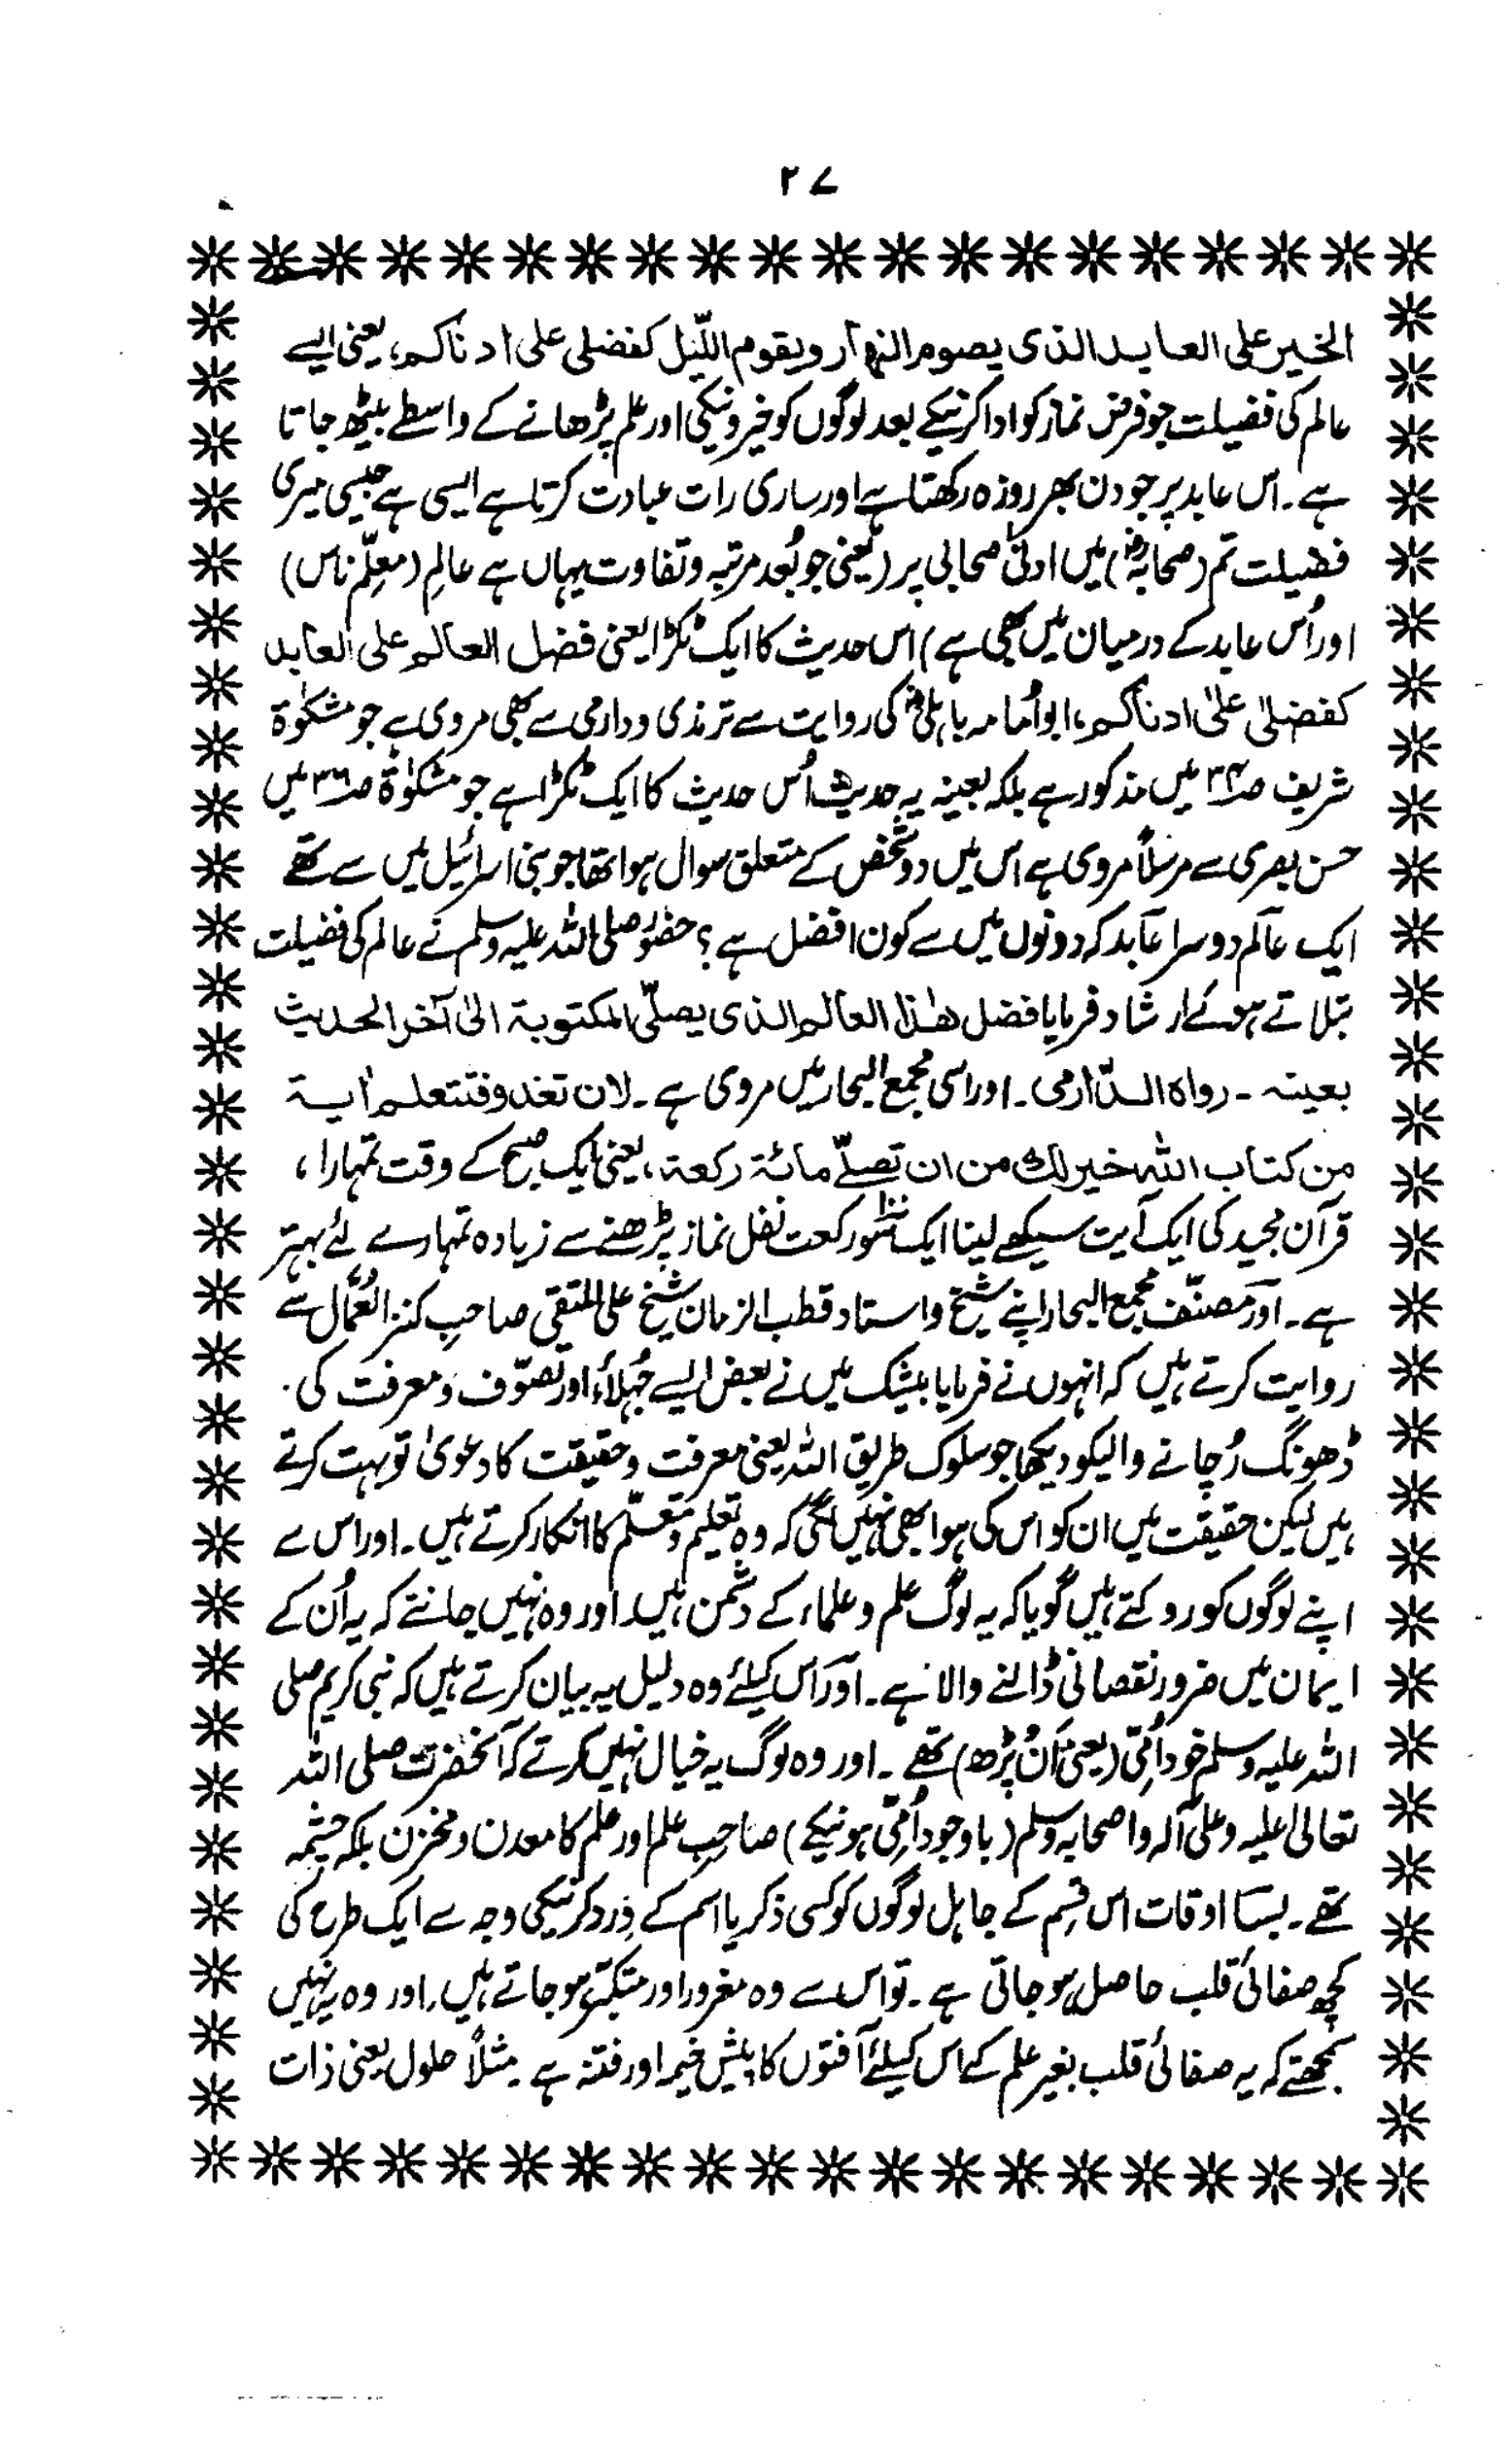 ۲۷
الخیر علی العابد الذی یصوم النہار ویقوم اللّیل کفضلی علی ادناکم، یعنی ایسے
عالم کی فضیلت جو فرض نماز کو ادا کرنیکے بعد لوگوں کو خیر و نیکی اور علم پڑھانے کے واسطے بیٹھ جاتا
ہے۔ اس عابد پر جو دن بھر روزہ رکھتا ہے اور ساری رات عبادت کرتا ہے ایسی ہے جیسی میری
فضیلت تم (صحابہؓ) میں ادنیٰ صحابی پر (یعنی جو بُعد مرتبہ و تفاوت یہاں ہے عالِم (معلِّم ناس)
اور اُس عابد کے درمیان میں بھی ہے) اس حدیث کا ایک ٹکڑا یعنی فضل العالم علی العابد
کفضلی علیٰ ادناکم، ابو اُمامہ باہلیؓ کی روایت سے ترمذی و دارمی سے بھی مروی ہے جو مشکوٰۃ
شریف صـ۳۴ میں مذکور ہے بلکہ بعینہ یہ حدیث اُس حدیث کا ایک ٹکڑا ہے جو مشکوٰۃ صـ۳۶ میں
حسن بصری سے مرسلاً مروی ہے اس میں دو شخص کے متعلق سوال ہوا تھا جو بنی اسرائیل میں سے تھے
ایک عالم دوسرا عابد کہ دونوں میں سے کون افضل ہے؟ حضور صلی اللہ علیہ وسلم نے عالم کی فضیلت
بتلاتے ہوئے ارشاد فرمایا فضل ھٰذا العالم الذی یصلّی المکتوبۃ الیٰ آخر الحدیث
بعینہ ۔ رواہ الدّارمی۔ اور اسی مجمع البحار میں مروی ہے۔ لان تغدو فتتعلم اٰیۃ
من کتاب اللّٰہ خیر لک من ان تصلّے مائۃ رکعۃ، یعنی ایک صبح کے وقت تمہارا ،
قرآن مجید کی ایک آیت سیکھ لینا ایک سَو رکعت نفل نماز پڑھنے سے زیادہ تمہارے لئے بہتر
ہے۔ اور مصنّف مجمع البحار اپنے شیخ و استاد قطب الزمان شیخ علی المتقی صاحبِ کنز العُمّال سے
روایت کرتے ہیں کہ انہوں نے فرمایا بیشک میں نے بعض ایسے جُہلاء اور تصوّف و معرفت کی
ڈھونگ رُچانے والیکو دیکھا جو سلوک طریق اللہ یعنی معرفت و حقیقت کا دعویٰ تو بہت کرتے
ہیں لیکن حقیقت میں ان کو اس کی ہوا بھی نہیں لگی کہ وہ تعلیم و تعلّم کا انکار کرتے ہیں۔ اور اس سے
اپنے لوگوں کو روکتے ہیں گویا کہ یہ لوگ علم و علماء کے دشمن ہیں اور وہ نہیں جانتے کہ یہ اُن کے
ایمان میں ضرور نقصانی ڈالنے والا ہے۔ اور اس کیلئے وہ دلیل یہ بیان کرتے ہیں کہ نبی کریم صلی
اللہ علیہ وسلم خود اُمّی (یعنی اَن پڑھ) تھے ۔ اور وہ لوگ یہ خیال نہیں کرتے کہ آنحضرت صلی اللہ
تعالیٰ علیہ وعلیٰ آلہ واصحابہ وسلم (باوجود اُمّی ہونیکے) صاحبِ علم اور علم کا معدن و مخزن بلکہ چشمہ
تھے۔ بسا اوقات اس قِسم کے جاہل لوگوں کو کسی ذکر یا اسم کے وِرد کرنیکی وجہ سے ایک طرح کی
کچھ صفائی قلب حاصل ہو جاتی ہے۔ تو اس سے وہ مغرور اور متکبّر ہو جاتے ہیں، اور وہ یہ نہیں
سمجھتے کہ یہ صفائی قلب بغیر علم کے اس کیلئے آفتوں کا پیش خیمہ اور فتنہ ہے مثلاً حلول یعنی ذات